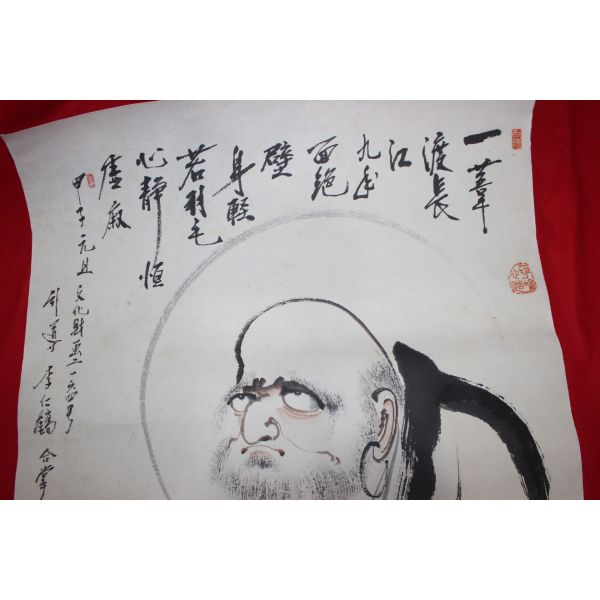 一葦
渡長
江
九年
面絶
壁
身輕
若羽毛
心靜恒
虛寂
甲子元旦
文化財画二一六四号
李仁鎬 合掌